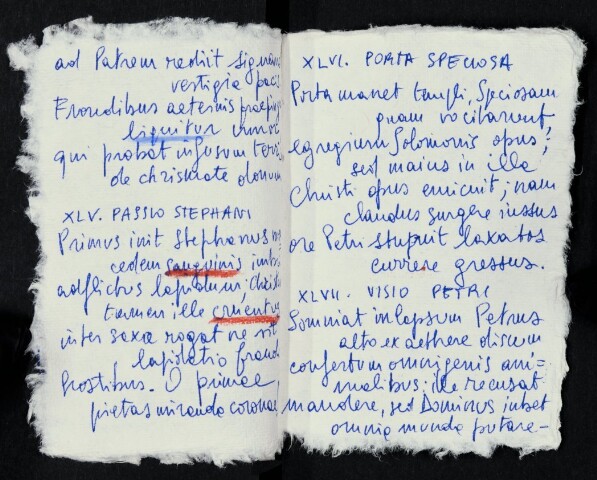 ad Patrem rediit signan
vestigia paci
Frondibus aeternis praepingu
liquitur umor
qui probat infusum terri
de chrismate donum
XLV. PASSIO STEPHANI
Primus init Stephanus m
cedem sanguinis imbri
adflictus lapidum; Christu
tamen ille cruentus
inter saxa rogat ne sit
lapidatio fraud
hostibus. O primae,
pietas miranda coronae
XLVI. PORTA SPECIOSA
Porta manet templi, Speciosam
quam vocitarunt
egregium Solomonis opus;
sed maius in illa
Christi opus emicuit; nam
claudus surgere iussus
ore Petri stupuit laxatos
currere gressus.
XLVII. VISIO PETRI
Somniat inlapsum Petrus
alto ex aethere discum
confertum omnigenis ani=
malibus; ille recusat
mandere, sed Dominus iubet
omnia munda putare-